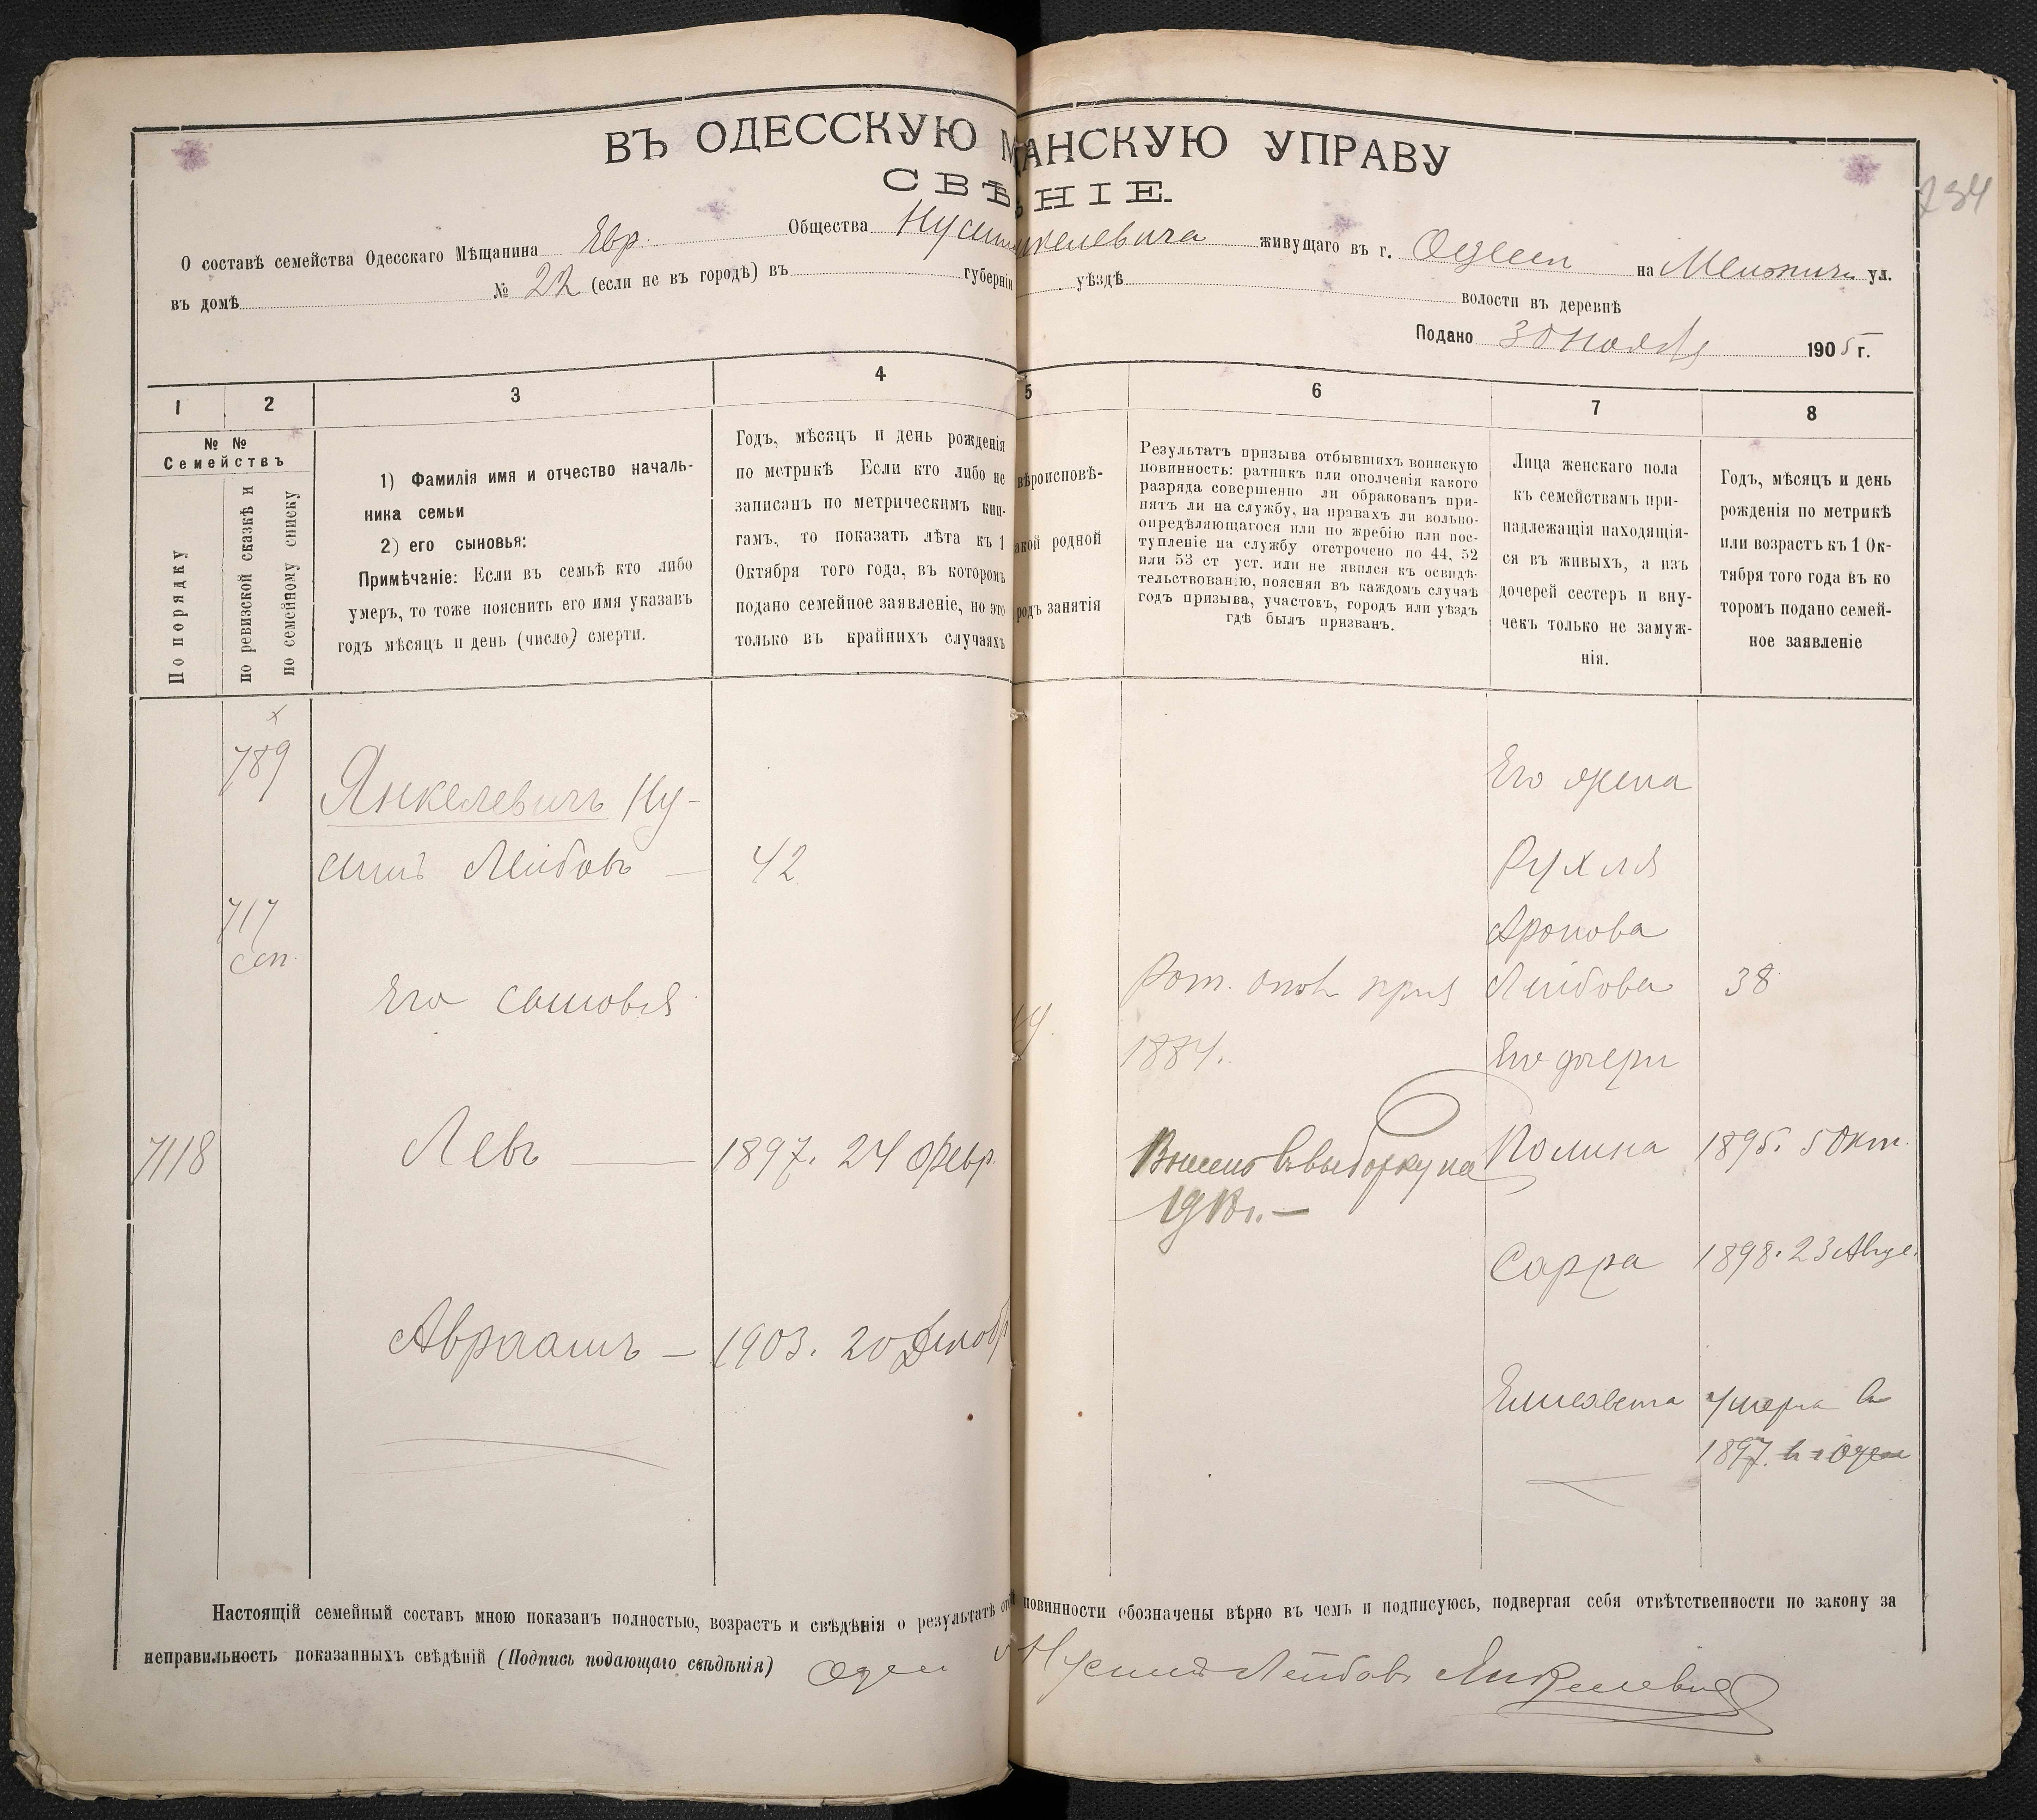 ВЪ ОДЕССКУЮ М АНСКУЮ УПРАВУ
СВѢ НІЕ.
234
О составѣ семейства Одесскаго Мѣщанина Евр. Общества Нусим нкелевича живущаго въ г. Одессы на ул.
въ домѣ № 22 (если не въ городѣ) въ губерніи уѣздѣ волости въ деревнѣ
Подано 30 ноября 1905 г.
1 2 3 4 5 6 7 8
№ №
Семействъ
По порядку
по ревизской сказкѣ и
по семейному списку
1) Фамилія имя и отчество началь-
ника семьи
2) его сыновья:
Примѣчаніе: Если въ семьѣ кто либо
умеръ, то тоже пояснить его имя указавъ
годъ мѣсяцъ и день (число) смерти.
Годъ, мѣсяцъ и день рожденія
по метрикѣ Если кто либо не
записанъ по метрическимъ кни-
гамъ, то показать лѣта къ 1
Октября того года, въ которомъ
подано семейное заявленіе, но это
только въ крайнихъ случаяхъ
ѣроисповѣ-
акой родной
родъ занятія
Результатъ призыва отбывшихъ воинскую
повинность: ратникъ или ополченія какого
разряда совершенно ли обракованъ при-
нятъ ли на службу, на правахъ ли вольно-
опредѣляющагося или по жребію или пос-
тупленіе на службу отстрочено по 44, 52
или 53 ст уст. или не явился къ освидѣ-
тельствованію, поясняя въ каждомъ случаѣ
годъ призыва, участокъ, городъ или уѣздъ
гдѣ былъ призванъ.
Лица женскаго пола
къ семействамъ при-
надлежащія находящія-
ся въ живыхъ, а изъ
дочерей сестеръ и вну-
чекъ только не замуж-
нія.
Годъ, мѣсяцъ и день
рожденія по метрикѣ
или возрастъ къ 1 Ок-
тября того года въ ко
торомъ подано семей-
ное заявленіе
789
Янкелевичъ Ну-
симъ Лейбовъ — 42
717
сп.
Его сыновья
Рат. опол. приз
1884.
Его жена
Рухля
Аронова
Лейбова 38
Его дочери
7118
Левъ — 1897. 24 Февр.
въ выборку на
1918 г. —
Полина 1895. 5 Окт.
Сарра 1898. 23 Авгус.
Авраамъ — 1903. 20 Декабр
Елисавета Умерла въ
1897.
Настоящій семейный составъ мною показанъ полностью, возрастъ и свѣдѣнія о результатѣ повинности обозначены вѣрно въ чемъ и подписуюсь, подвергая себя отвѣтственности по закону за
неправильность показанныхъ свѣдѣній (Подпись подающаго свѣдѣнія) Нусимъ Лейбовъ Янкелевичъ